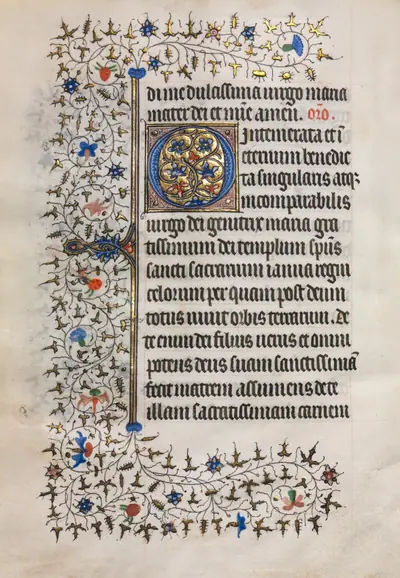 di me dulcissima virgo maria
mater dei et mīe amen. orō.
O Intemerata et ī
eternum benedic
ta singularis atqꝫ
incomparabilis
virgo dei genitrix maria gra
tissimum dei templum spūs
sancti sacrarium ianua regni
celorum per quam post deum
totus vivit orbis terrarum. De
te enim dei filius verus et omni
potens deus suam sanctissimā
fecit matrem assumens de te
illam sacratissimam carnem